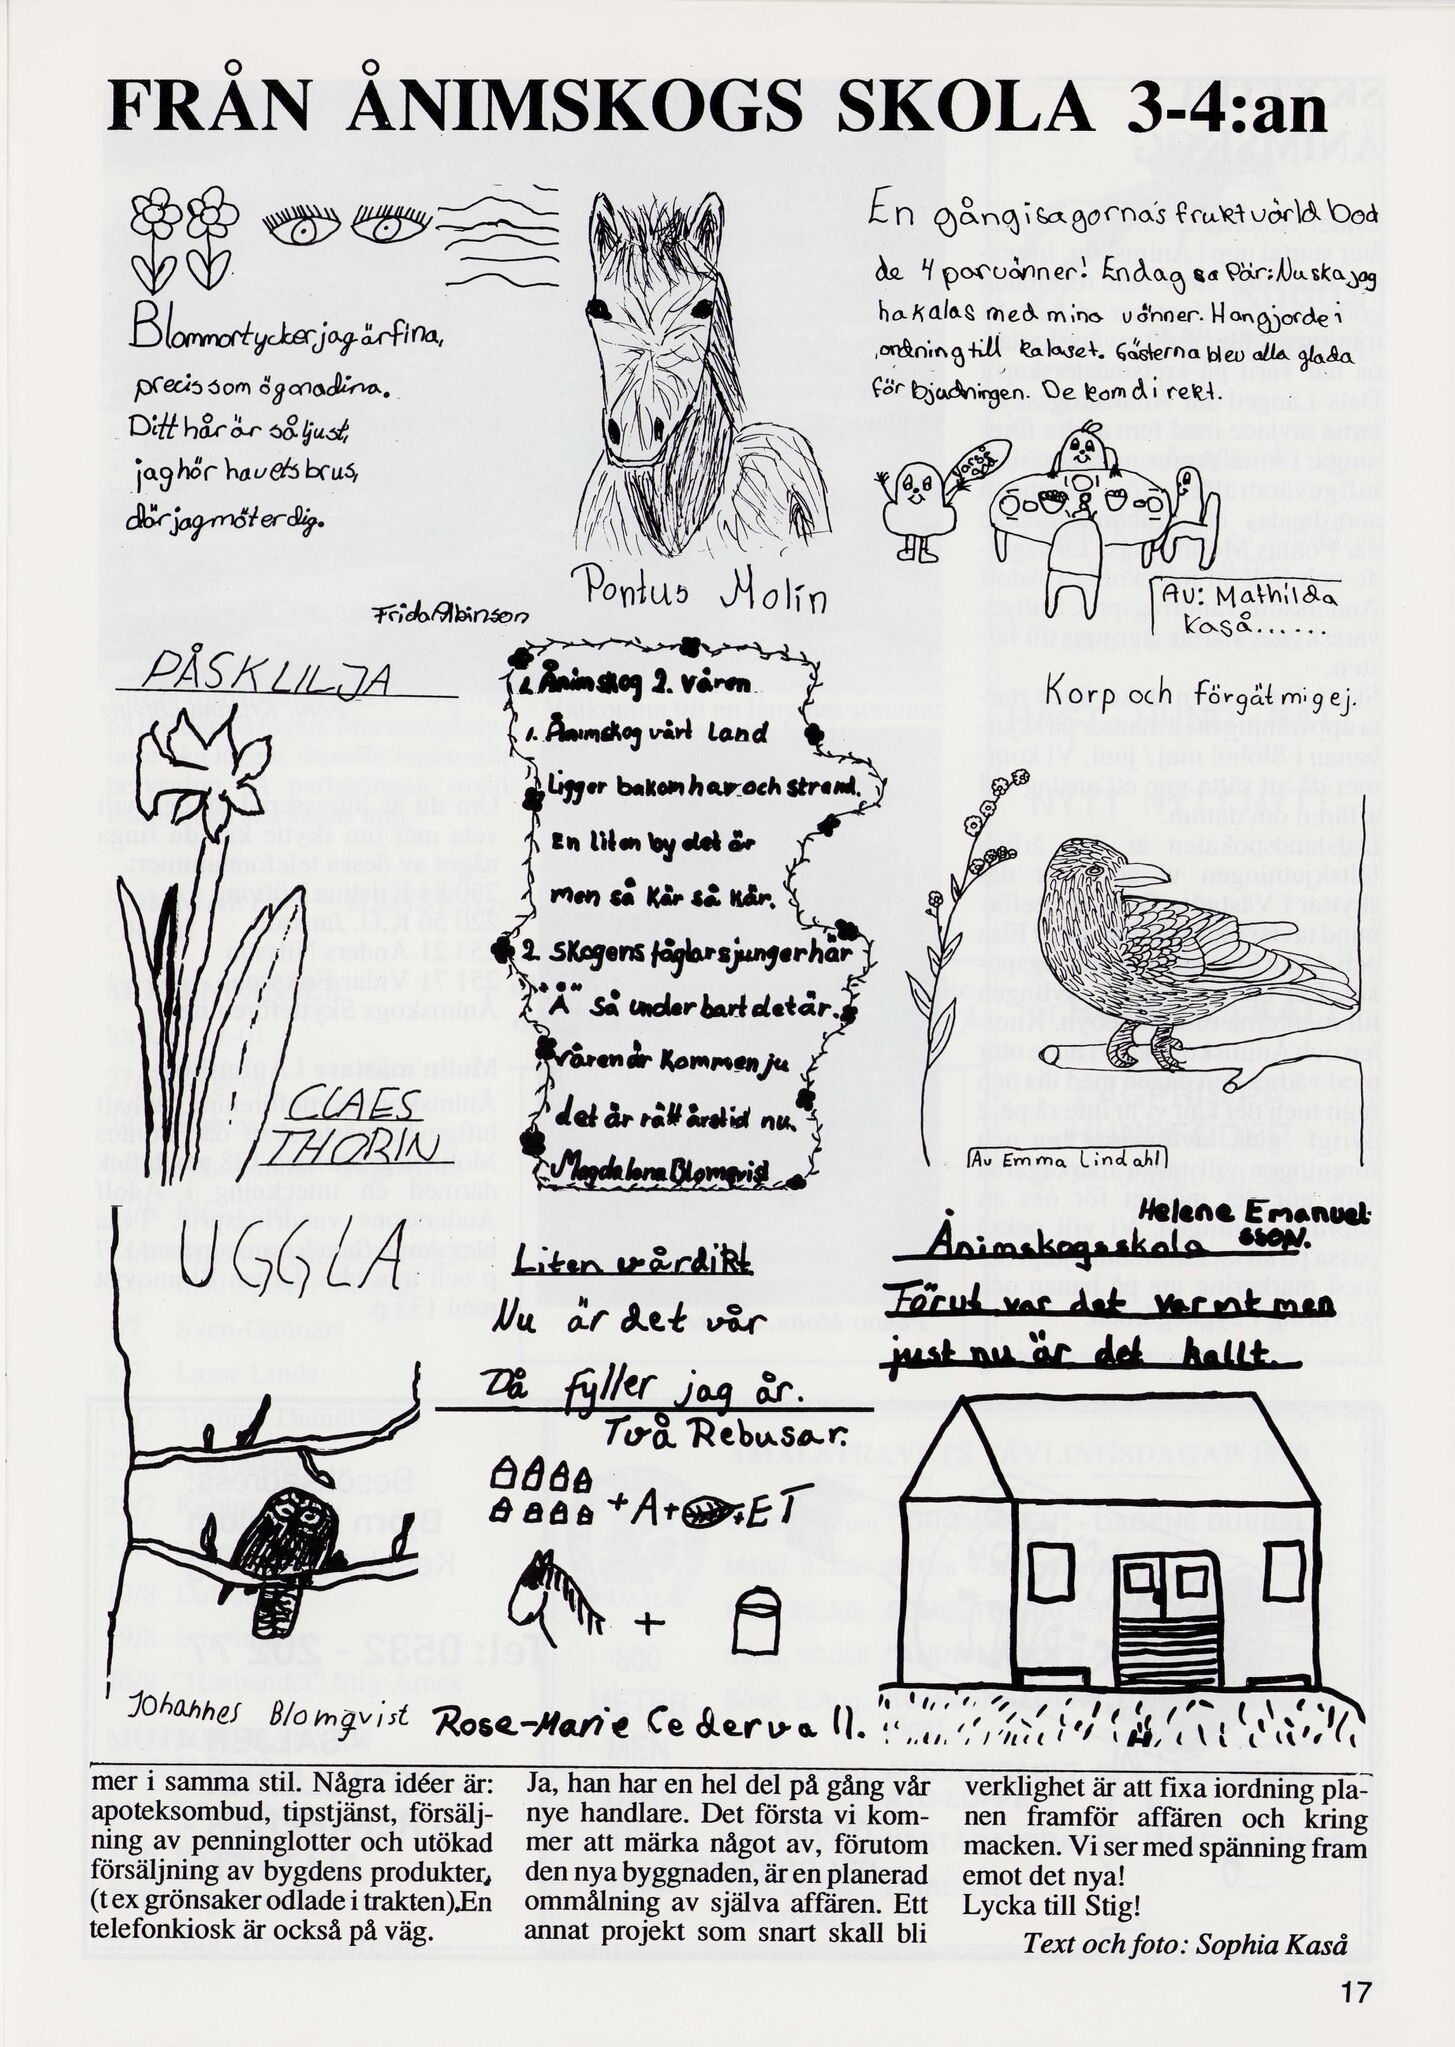 FRÅN ÅNIMSKOGS SKOLA 3-4:an
Blommor tycker jag är fina,
precis som ögona dina.
Ditt hår är så ljust,
jag hör havets brus,
där jag möter dig.
Frida Albinson
Pontus Molin
En gång i sagornas fruktvärld bod
de 4 parvänner! En dag sa Pär: Nu ska jag
ha kalas med mina vänner. Han gjorde i
ordning till kalaset. Gästerna blev alla glada
för bjudningen. De kom direkt.
Varså
god
Av: Mathilda
Kaså......
PÅSKLILJA
CLAES
THORIN
1. Ånimskog 2. Våren
1. Ånimskog vårt land
Ligger bakom hav och strand.
En liten by det är
men så kär så kär.
2. Skogens fåglar sjunger här
"Å" så underbart det är.
Våren är kommen ju
det är rätt årstid nu.
Magdalena Blomqvist
Korp och förgätmigej.
Av Emma Lindahl
UGGLA
Johannes Blomqvist
Liten vårdikt
Nu är det vår
Då fyller jag år.
Två Rebusar.
+ A + + ET
+
Rose-Marie Cedervall.
Helene Emanuel-
sson.
Ånimskogsskola
Förut var det varmt men
just nu är det kallt.
mer i samma stil. Några idéer är:
apoteksombud, tipstjänst, försälj-
ning av penninglotter och utökad
försäljning av bygdens produkter,
(t ex grönsaker odlade i trakten).En
telefonkiosk är också på väg.
Ja, han har en hel del på gång vår
nye handlare. Det första vi kom-
mer att märka något av, förutom
den nya byggnaden, är en planerad
ommålning av själva affären. Ett
annat projekt som snart skall bli
verklighet är att fixa iordning pla-
nen framför affären och kring
macken. Vi ser med spänning fram
emot det nya!
Lycka till Stig!
Text och foto: Sophia Kaså
17